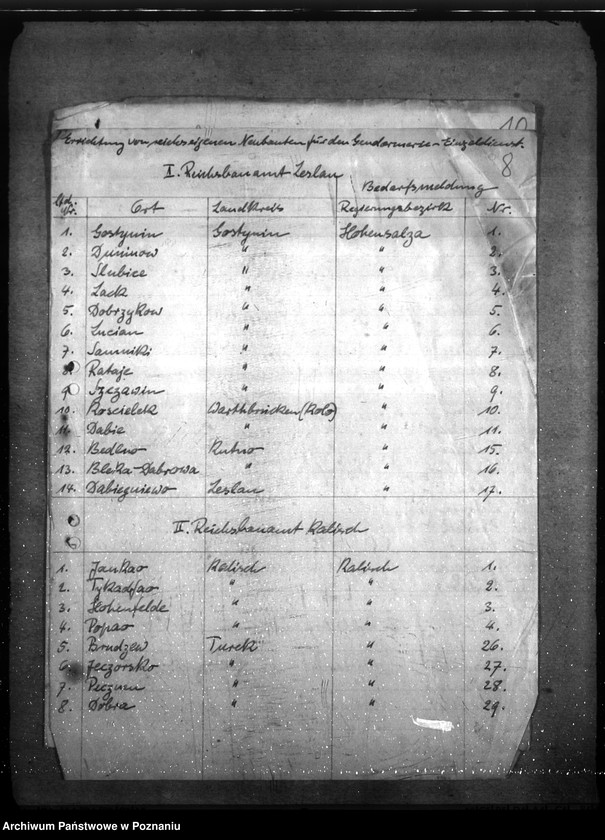 10
Errichtung von reichseigenen Neubauten für den Gendarmerie-Einzeldienst.
8
I. Reichsbauamt Leslau
Bedarfsmeldung
Lfd. Nr. Ort Landkreis Regierungsbezirk Nr.
1. Gostynin Gostynin Hohensalza 1.
2. Duninow " " 2.
3. Slubice " " 3.
4. Lack " " 4.
5. Dobrzykow " " 5.
6. Lucian " " 6.
7. Sanniki " " 7.
8. Rataje " " 8.
9. Szczawin " " 9.
10. Koscielek Warthbrücken (Kolo) " 10.
11. Dabie " " 11.
12. Bedlno Kutno " 15.
13. Bleka-Dabrowa " " 16.
14. Dabiegniewo Leslau " 17.
II. Reichsbauamt Kalisch
1. Jankao Kalisch Kalisch 1.
2. " " 2.
3. Hohenfelde " " 3.
4. Popao " " 4.
5. Brudzew Turek " 26.
6. Jeczorsko " " 27.
7. " " 28.
8. Dobra " " 29.
Archiwum Państwowe w Poznaniu